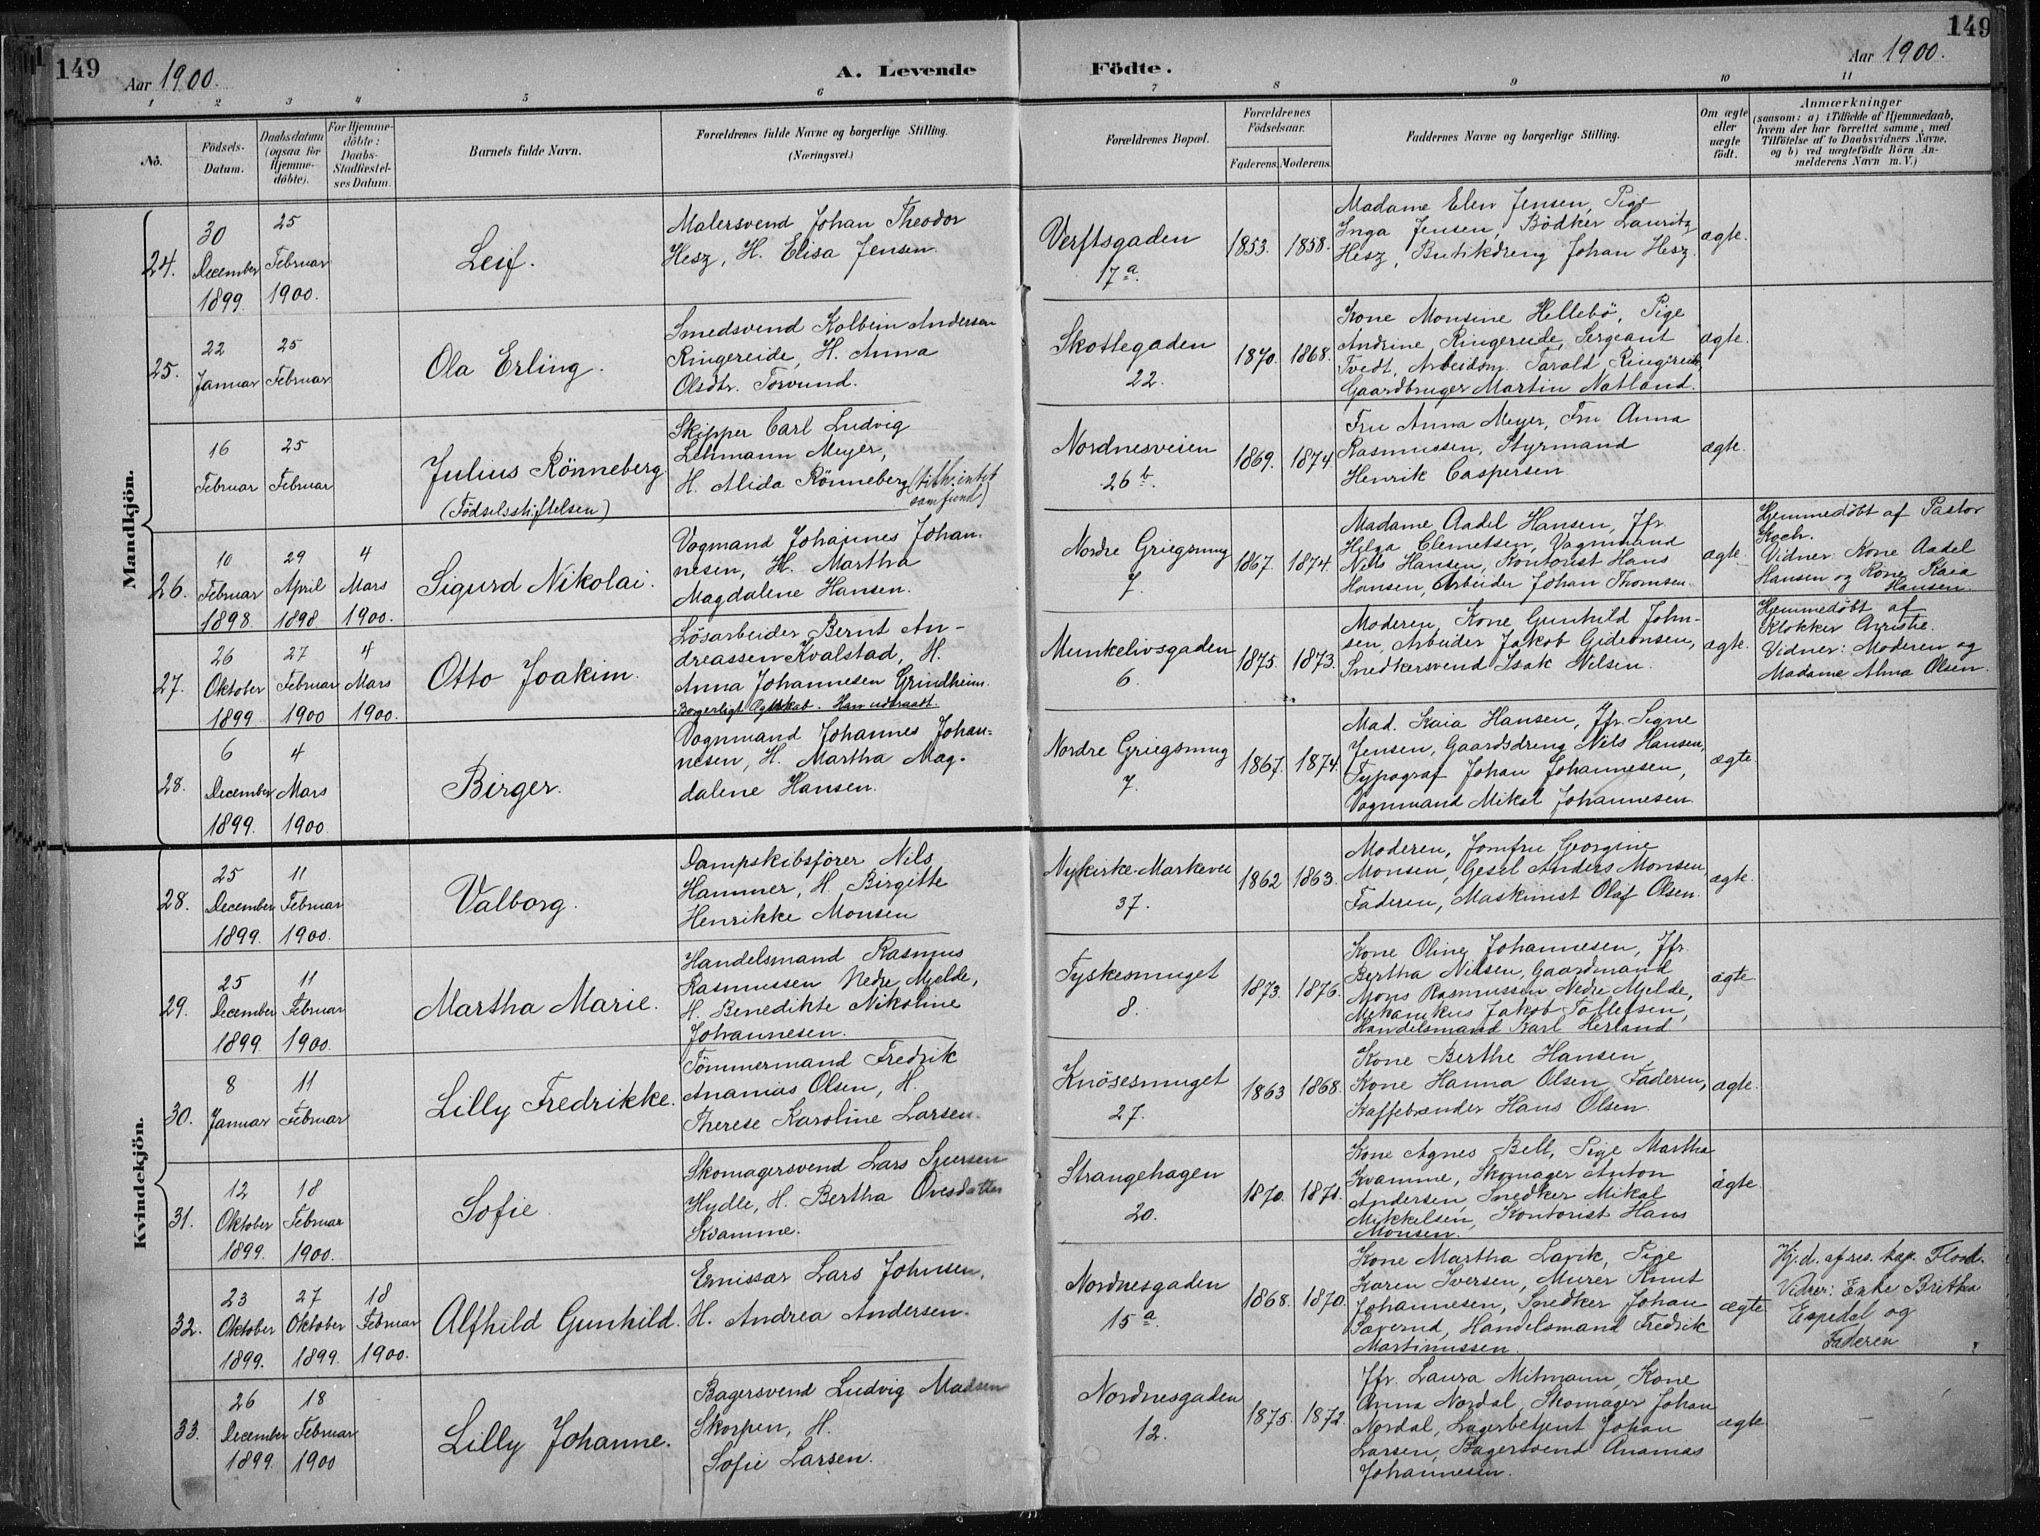 149
Aar 1900.
A. Levende Födte.
Aar 1900.
149
1 2 3 4 5 6 7 8 9 10 11
No.
Födsels-Datum.
Daabsdatum (ogsaa for Hjemme-döbte).
For Hjemme-döbte: Daabs-Stadfæstel-ses Datum.
Barnets fulde Navn.
Forældrenes fulde Navne og borgerlige Stilling.
(Næringsvei.)
Forældrenes Bopæl.
Forældrenes Födselsaar.
Faderens. Moderens.
Faddernes Navne og borgerlige Stilling.
Om ægte eller uægte födt.
Anmærkninger
(saasom: a) i Tilfælde af Hjemmedaab, hvem der har forrettet samme, med Tilföielse af to Daabsvidners Navne, og b) ved uægtefödte Börn An-melderens Navn m. V.)
Mandkjön.
24.
30 December 1899
25 Februar 1900.
Leif.
Malersvend Johan Theodor
Hesz, H. Elisa Jensen.
Verftsgaden
17a.
1853. 1858.
Madame Elen Jensen, Pige
Inga Jensen, Bödker Lauritz
Hesz, Butikdreng Johan Hesz.
ægte.
25.
22 Januar
25 Februar
Ola Erling.
Smedsvend Kolbein Andersen
Ringereide, H. Anna
Olsdtr. Torvund.
Skottegaden
22.
1870. 1868.
Kone Monsine Hellebö, Pige
Andrine Ringereide, Sergeant
Tvedt, Arbeidsm. Tarald Ringereide,
Gaardbruger Martin Natland.
ægte.
16 Februar
25 Februar
Julius Rönneberg
(Födselsstiftelsen)
Skipper Carl Ludvig
Lehmann Meyer,
H. Alida Rönneberg (tilh. intet
samfund)
Nordnesveien
26b.
1869. 1874.
Fru Anna Meyer, Fru Anna
Rasmussen, Styrmand
Henrik Caspersen.
ægte.
26.
10 Februar 1898.
29 April 1898
4 Mars 1900.
Sigurd Nikolai.
Vogmand Johannes Johan-
nesen, H. Martha
Magdalene Hansen.
Nordre Griegsmug
7.
1867. 1874.
Madame Aadel Hansen, Jfr.
Helga Clemetsen, Vogmand
Nils Hansen, Kontorist Hans
Hansen, Arbeider Johan Thomsen.
ægte.
Hjemmedöbt af Pastor
Koch.
Vidner: Kone Aadel
Hansen og Kone Kaia
Hansen.
27.
26 Oktober 1899
27 Februar 1900
4 Mars 1900.
Otto Joakim.
Lösarbeider Bernt An-
dreassen Kvalstad, H.
Anna Johannesen Grindheim.
Munkelivsgaden
6.
1875. 1873.
Moderen, Kone Gunhild John-
sen, Arbeider Jakob Gideonsen,
Snedkersvend Isak Nilsen.
ægte.
Hjemmedöbt af
Klokker Christie.
Vidner: Moderen og
Madame Alma Olsen.
28.
6 December 1899.
4 Mars 1900
Birger.
Vognmand Johannes Johan-
nesen, H. Martha Mag-
dalene Hansen.
Nordre Griegsmug
7.
1867. 1874.
Mad. Kaia Hansen, Jfr. Signe
Jensen, Gaardsdreng Nils Hansen,
Typograf Johan Johannesen,
Vognmand Mikal Johannesen.
ægte
Kvindekjön.
28.
25 December 1899.
11 Februar 1900.
Valborg.
Dampskibsförer Nils
Hammer, H. Birgitte
Henrikke Monsen
Nykirke Markevei
37.
1862 1863.
Moderen, Jomfru Georgine
Monsen, Gesel Anders Monsen
Faderen, Maskinist Olaf Olsen.
ægte.
29.
25 December 1899
11 Februar 1900.
Martha Marie.
Handelsmand Rasmus
Rasmussen Nedre Mjelde,
H. Benedikte Nikoline
Johannesen.
Tyskesmuget
8.
1873. 1876.
Kone Oline Johannesen, Jfr.
Bertha Nilsen, Gaardmand
Mons Rasmussen Nedre Mjelde,
Mekanikus Jakob Tollefsen,
Handelsmand Karl Herland
ægte
30.
8 Januar
11 Februar
Lilly Fredrikke.
Tömmermand Fredrik
Ananias Olsen, H.
Therese Karoline Larsen.
Knösesmuget
27.
1863 1868.
Kone Berthe Hansen,
Kone Hanna Olsen, Faderen,
Kaffebrænder Hans Olsen.
ægte.
31.
12 Oktober 1899.
18 Februar 1900.
Sofie.
Skomagersvend Lars Sjursen
Hydle, H. Bertha Ovesdatter
Kvamme.
Strangehagen
20.
1870. 1871.
Kone Agnes Bell, Pige Martha
Kvamme, Skomager Anton
Andersen, Snedker Mikal
Mikkelsen, Kontorist Hans
Monsen.
ægte.
32.
23 Oktober 1899.
27 Oktober 1899.
18 Februar 1900.
Alfhild Gunhild.
Emissær Lars Johnsen,
H. Andrea Andersen.
Nordnesgaden
15a.
1868. 1870.
Kone Martha Lavik, Pige
Karen Iversen, Murer Knut
Johannesen, Snedker Johan
Handelsmand Fredrik
Martinussen.
ægte
Hj.d. af res. kap. Flood.
Vidner: Enke Britha
Espedal og
Faderen
33.
26 December 1899.
18 Februar 1900
Lilly Johanne.
Bagersvend Ludvig Madsen
Skorpen, H.
Sofie Larsen.
Nordnesgaden
12.
1875. 1872.
Jfr. Laura Mitmann, Kone
Anna Nordal, Skomager Johan
Nordal, Lagerbetjent Johan
Larsen, Bagersvend Ananias
Johannesen.
ægte